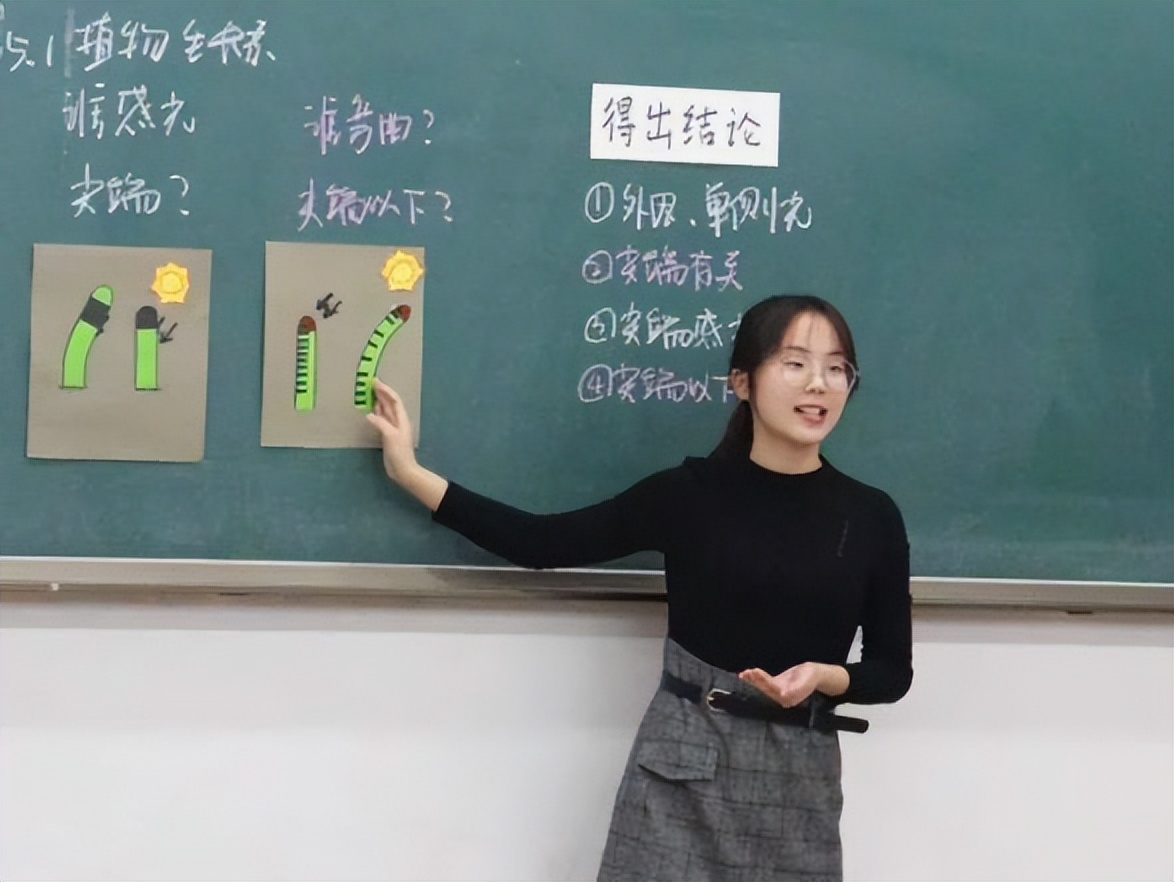 5.1 植物生长素
谁感光
尖端?
谁弯曲?
尖端以下?
得出结论
①外因、单侧光
②尖端有关
③尖端感
④尖端以下